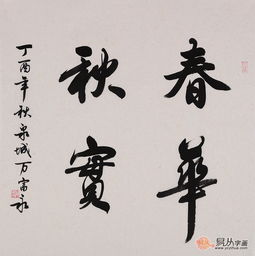 春華
秋實
丁酉年秋泉城万富永
易从字画